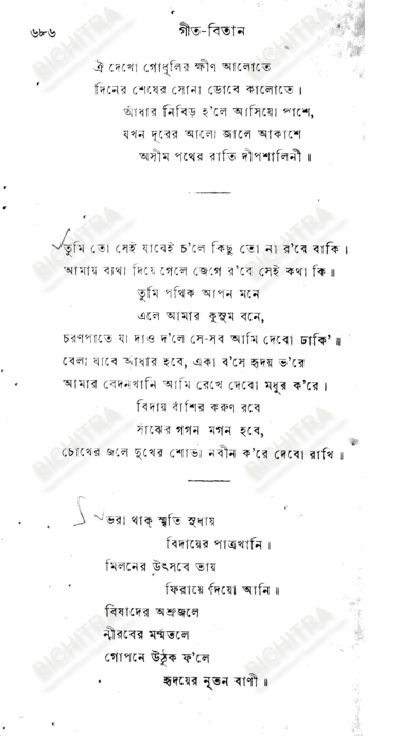 ৬৮৬ গীত-বিতান
ঐ দেখো গোধূলির ক্ষীণ আলোতে
দিনের শেষের সোনা ডোবে কালোতে।
আঁধার নিবিড় হ'লে আসিয়ো পাশে,
যখন দূরের আলো জালে আকাশে
অসীম পথের রাতি দীপশালিনী॥
তুমি তো সেই যাবেই চ'লে কিছু তো না র'বে বাকি।
আমায় ব্যথা দিয়ে গেলে জেগে র'বে সেই কথা কি॥
তুমি পথিক আপন মনে
এলে আমার কুসুম বনে,
চরণপাতে যা দাও দ'লে সে-সব আমি দেবো ঢাকি'॥
বেলা যাবে আঁধার হবে, একা ব'সে হৃদয় ভ'রে
আমার বেদনখানি আমি রেখে দেবো মধুর ক'রে।
বিদায় বাঁশির করুণ রবে
সাঁঝের গগন মগন হবে,
চোখের জলে দুখের শোভা নবীন ক'রে দেবো রাখি॥
ভরা থাক্ স্মৃতি সুধায়
বিদায়ের পাত্রখানি॥
মিলনের উৎসবে তায়
ফিরায়ে দিয়ো আনি॥
বিষাদের অশ্রুজলে
নীরবের মর্ম্মতলে
গোপনে উঠুক ফ'লে
হৃদয়ের নূতন বাণী॥
BICHITRA